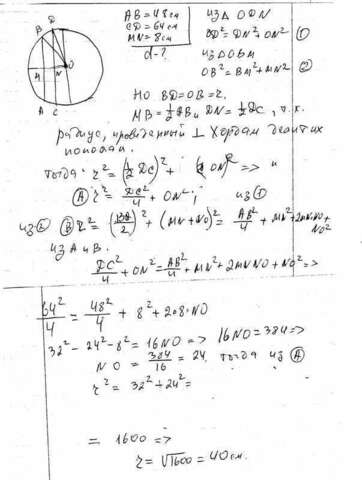 B D
M N O
A C
AB = 48 см
CD = 64 см
MN = 8 см
d - ?
из △ ODN
OD² = DN² + ON² ①
из △ OBM
OB² = BM² + MN2 ②
Но BD = OB = r.
MB = ½ AB и DN = ½ DC, т.к.
радиус, проведенный ⊥ хордам делит их
пополам.
тогда: r² = (½ DC)² + ON² => и
Ⓐ r² = DC²/4 + ON²; из ①
из ② Ⓑ r² = (AB/2)² + (MN+NO)² = AB²/4 + MN² + 2MN·NO + NO²
из A и B.
DC²/4 + ON² = AB²/4 + MN² + 2MN NO + NO² =>
64²/4 = 48²/4 + 8² + 2·8·NO
32² - 24² - 8² = 16NO => 16NO = 384 =>
NO = 384/16 = 24. тогда из Ⓐ
r² = 32² + 24² =
= 1600 =>
r = √1600 = 40 см.